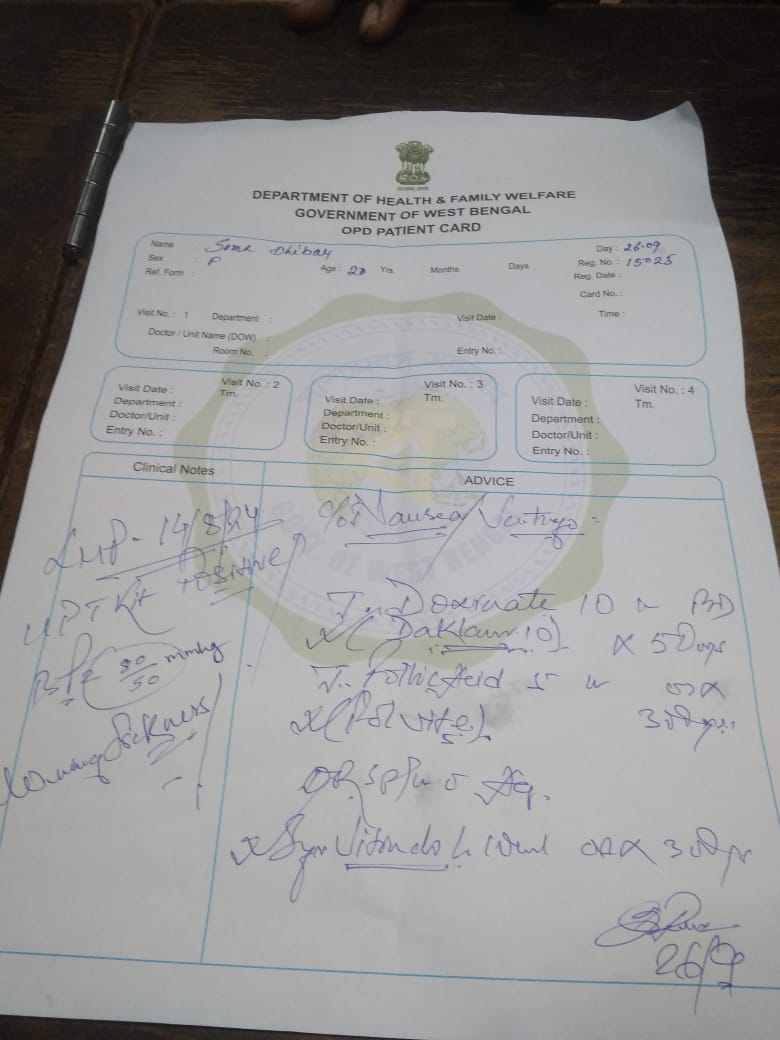 DEPARTMENT OF HEALTH & FAMILY WELFARE
GOVERNMENT OF WEST BENGAL
OPD PATIENT CARD
Name : Soma Dhibar
Day : 26.09
Sex : F
Age : 20 Yrs. Months Days
Reg. No. : 15025
Ref. Form :
Reg. Date :
Card No. :
Visit No. : 1 Department :
Visit Date :
Time :
Doctor / Unit Name (DOW) :
Room No. :
Entry No. :
Visit Date : Visit No. : 2
Department : Tm.
Doctor/Unit :
Entry No. :
Visit Date : Visit No. : 3
Department : Tm.
Doctor/Unit :
Entry No. :
Visit Date : Visit No. : 4
Department : Tm.
Doctor/Unit :
Entry No. :
Clinical Notes
ADVICE
LMP - 14/8/24
UPT Kit Positive
BP = 80/50 mmhg
Morning Sickness
c/o Nausea/ Vertigo :
T. Doxinate 10 BD
x 5 Days
T. Follic Acid 5 x
(Folvite 5) 30 days
ORS
Syr x 30 days
26/9
GOVT. OF WEST BENGAL